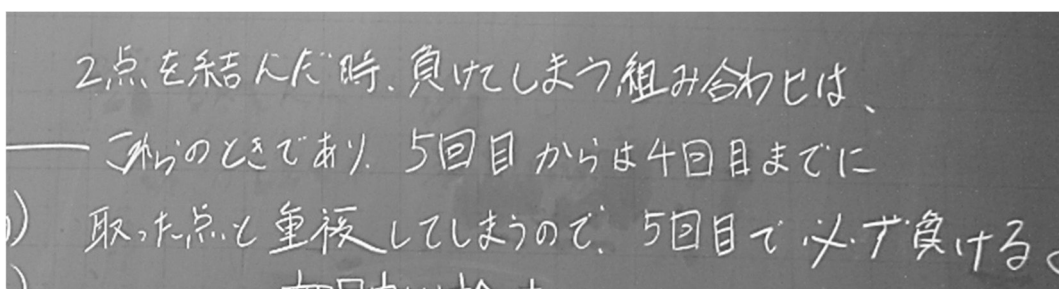 2点を結んだ時、負けてしまう組み合わせは、
これらのときであり、5回目からは4回目までに
取った点と重複してしまうので、5回目で必ず負ける。